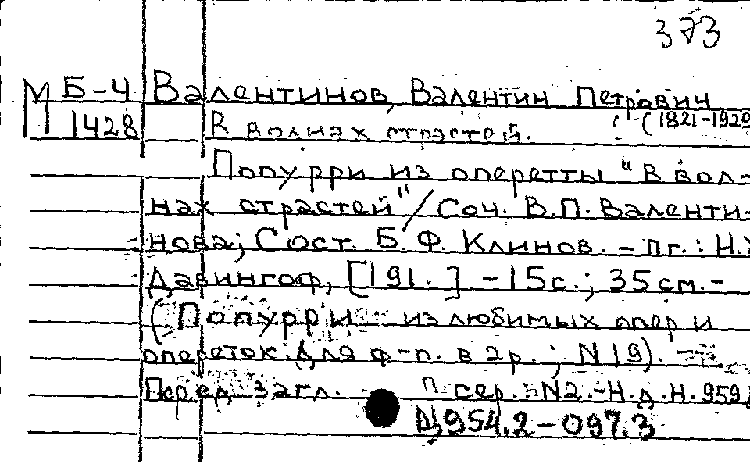 373
М Б-4 Валентинов, Валентин Петрович
1428 В волнах страстей. (1821-1929
Попурри из оперетты "В вол-
нах страстей" / Соч. В.П. Валенти-
нова; Сост. Б. Ф. Клинов. - Пг.: Н.Х.
Давингоф, [191. ] - 15 с.; 35 см. -
(Попурри из любимых опер и
опереток для ф-п. в 2 р.; N 19). -
Перед загл. сер.: N2. - Н.д. Н. 959
Д)954.2-097.3